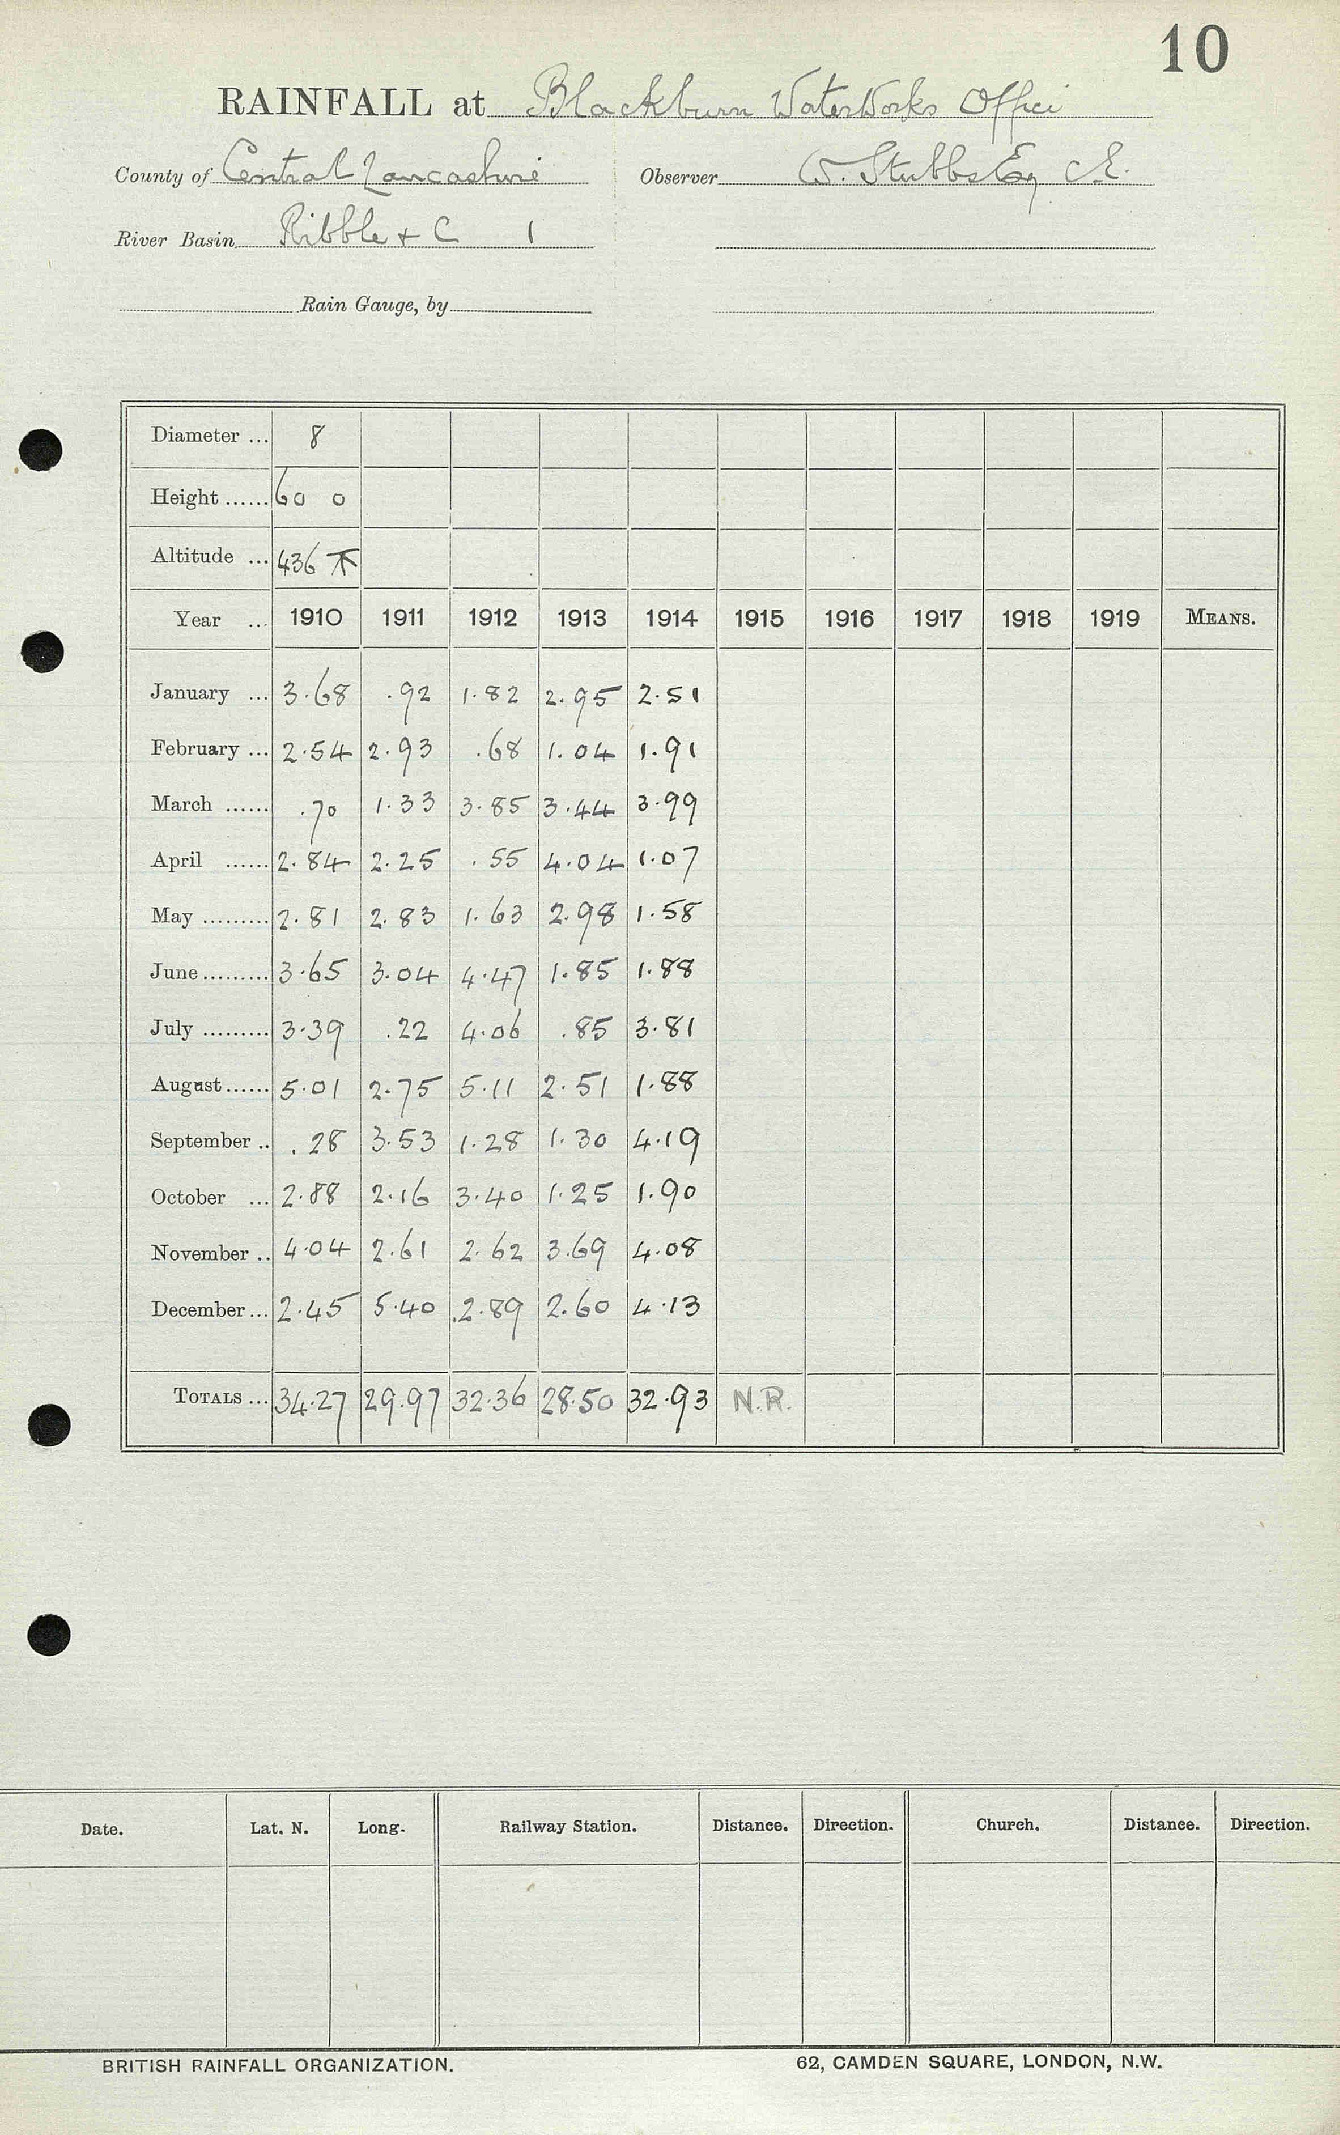 10
RAINFALL at Blackburn WaterWorks Office
County of Central Lancashire Observer W. Stubbs Esq C.E.
River Basin Ribble + C 1
Rain Gauge, by
Diameter ... 8
Height ...... 60 0
Altitude ... 436
Year .. 1910 1911 1912 1913 1914 1915 1916 1917 1918 1919 MEANS.
January ... 3.68 .92 1.82 2.95 2.51
February ... 2.54 2.93 .68 1.04 1.91
March ...... .70 1.33 3.85 3.44 3.99
April ...... 2.84 2.25 .55 4.04 1.07
May ......... 2.81 2.83 1.63 2.98 1.58
June ......... 3.65 3.04 4.47 1.85 1.88
July ......... 3.39 .22 4.06 .85 3.81
August ...... 5.01 2.75 5.11 2.51 1.88
September .. .28 3.53 1.28 1.30 4.19
October ... 2.88 2.16 3.40 1.25 1.90
November .. 4.04 2.61 2.62 3.69 4.08
December ... 2.45 5.40 2.89 2.60 4.13
TOTALS ... 34.27 29.97 32.36 28.50 32.93 N.R.
Date. Lat. N. Long. Railway Station. Distance. Direction. Church. Distance. Direction.
BRITISH RAINFALL ORGANIZATION. 62, CAMDEN SQUARE, LONDON, N.W.